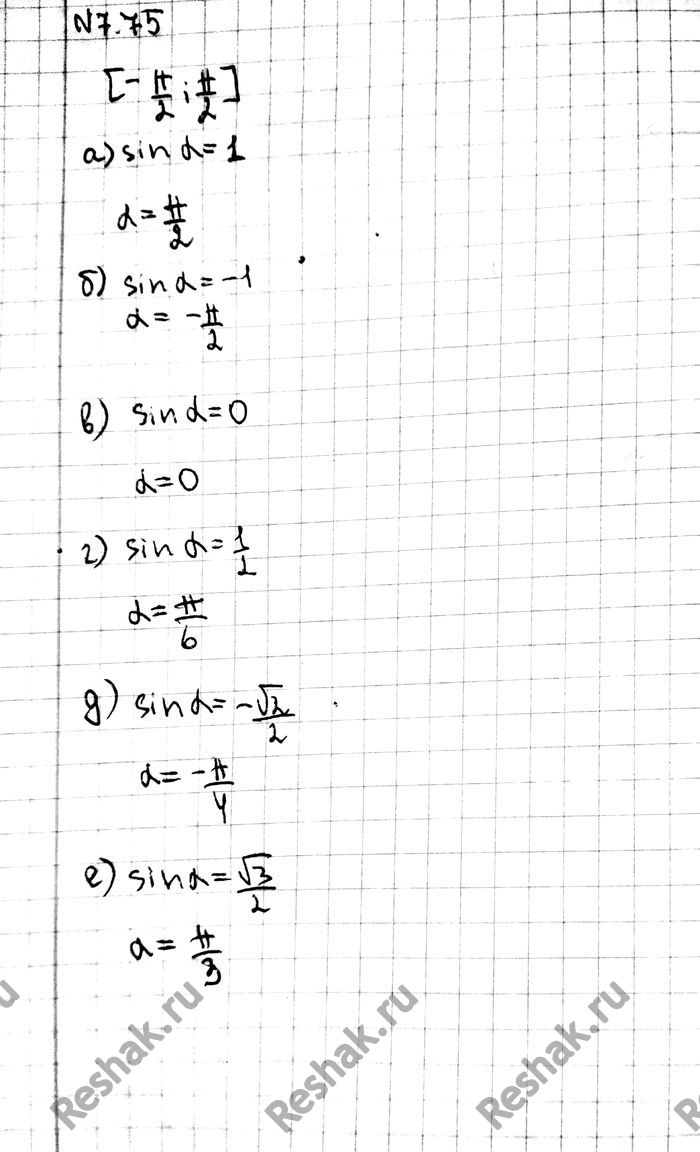 N7.75
[-π/2; π/2]
а) sin α = 1
α = π/2
б) sin α = -1
α = -π/2
в) sin α = 0
α = 0
г) sin α = 1/2
α = π/6
д) sin α = -√2/2
α = -π/4
е) sin α = √3/2
α = π/3
Reshak.ru
Reshak.ru
Reshak.ru